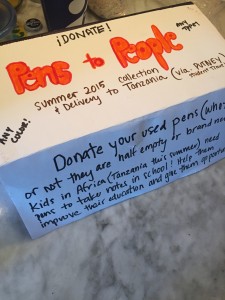 ¡DONATE!
Pens to People
ANY COLOR!
summer 2015 collection
& Delivery to Tanzania (via PUTNEY
Student Travel
Donate your used pens (whether
or not they are half empty or brand new
Kids in Africa (Tanzania this summer) need
pens to take notes in school! Help them
improve their education and give them opportun